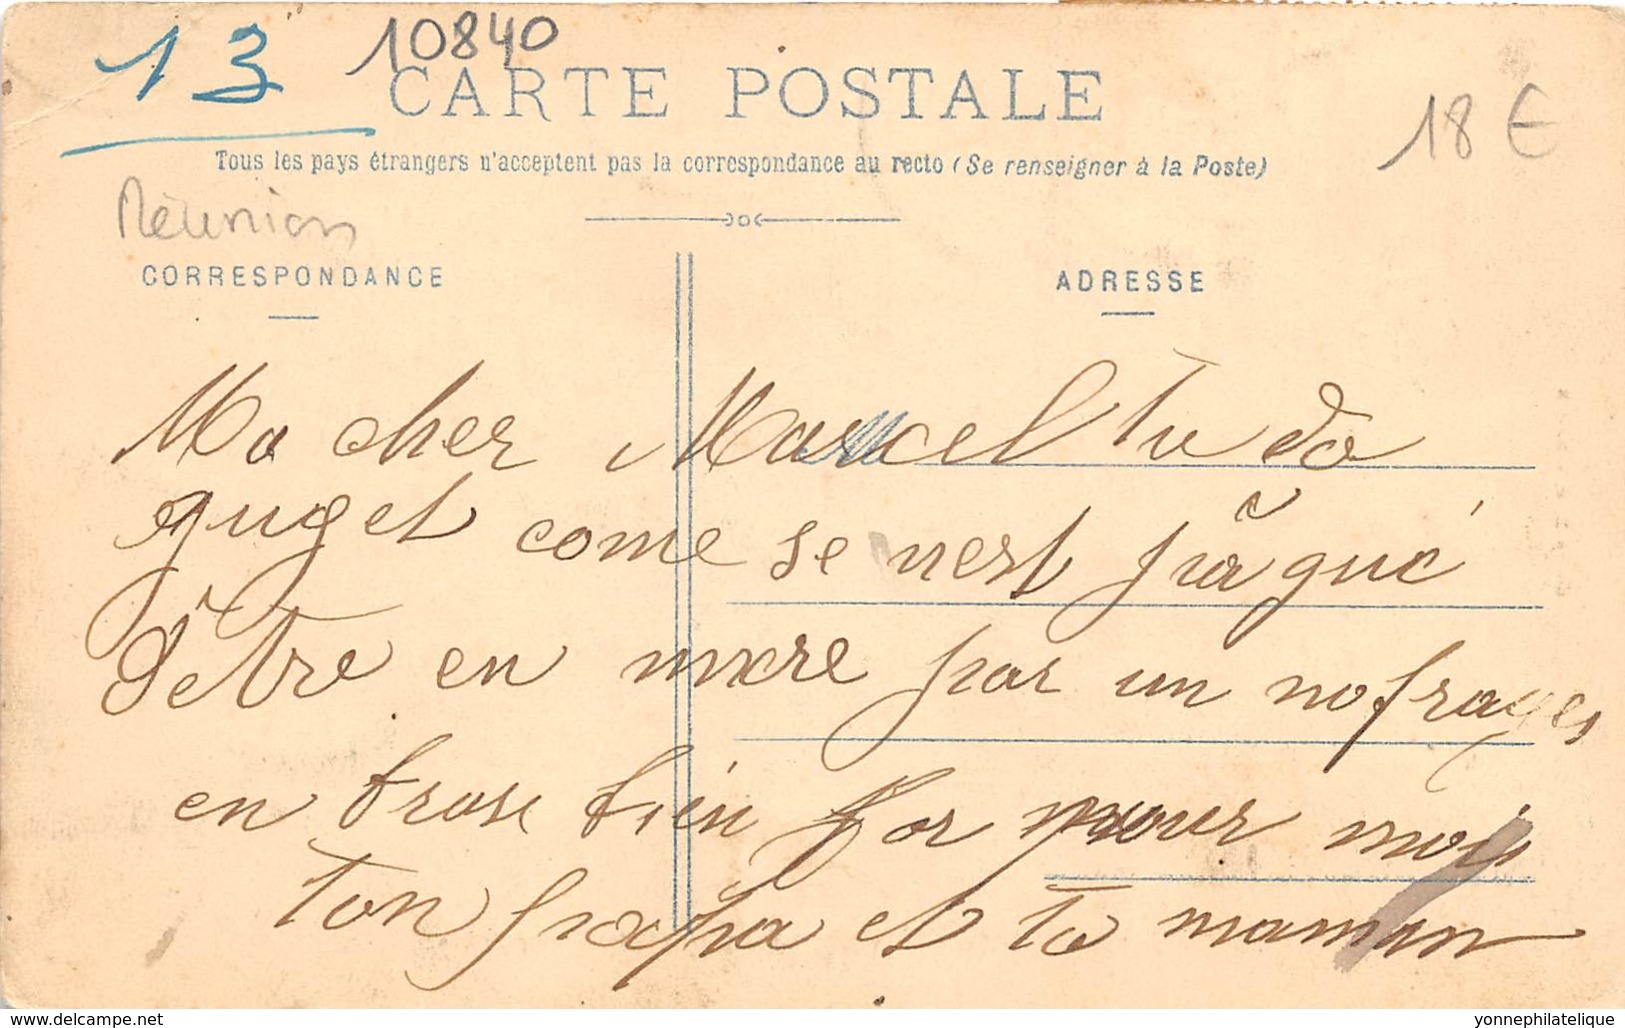 13
10840
CARTE POSTALE
18 €
Tous les pays étrangers n'acceptent pas la correspondance au recto (Se renseigner à la Poste)
Réunion
CORRESPONDANCE
ADRESSE
Mo cher Marcel Tu do
guget come se nest pâ gué
d'etre en mere par un nofrages
en brase bien for pour mois
ton papa et ta maman
www.delcampe.net
yonnephilatelique